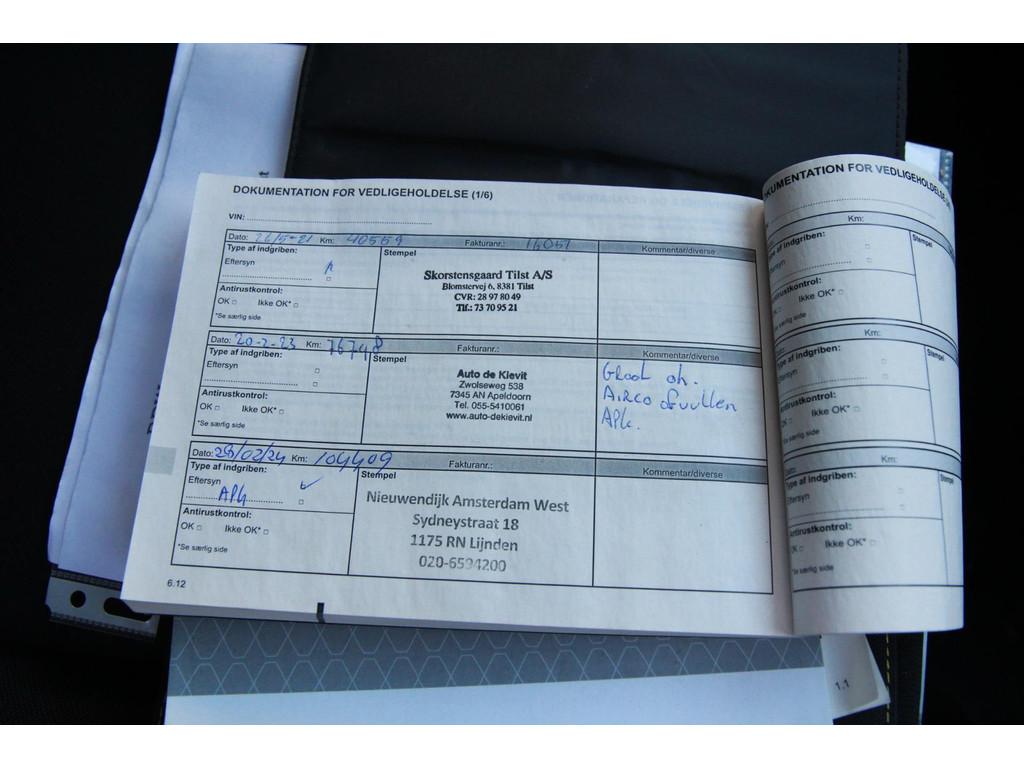 DOKUMENTATION FOR VEDLIGEHOLDELSE (1/6)
VIN:
Dato: 26/5-21 Km: 40559 Fakturanr.: 16051 Kommentar/diverse
Type af indgriben: Stempel
Eftersyn
Antirustkontrol:
OK Ikke OK*
*Se særlig side
Skorstensgaard Tilst A/S
Blomstervej 6, 8381 Tilst
CVR: 28 97 80 49
Tlf.: 73 70 95 21
Dato: 20-2-23 Km: 76748 Fakturanr.: Kommentar/diverse
Type af indgriben: Stempel
Eftersyn
Antirustkontrol:
OK Ikke OK*
*Se særlig side
Auto de Kievit
Zwolseweg 538
7345 AN Apeldoorn
Tel. 055-5410061
www.auto-dekievit.nl
Groot oh.
Airco afvullen
APK.
Dato: 29/02/24 Km: 104409 Fakturanr.: Kommentar/diverse
Type af indgriben: Stempel
Eftersyn
APK
Antirustkontrol:
OK Ikke OK*
*Se særlig side
Nieuwendijk Amsterdam West
Sydneystraat 18
1175 RN Lijnden
020-6594200
6.12
KUMENTATION FOR VEDLIGEHOLDELSE
Km:
pe af indgriben: Stempel
Eftersyn
Antirustkontrol:
OK Ikke OK*
*Se særlig side
Km:
Type af indgriben: Stempel
Eftersyn
Antirustkontrol:
OK Ikke OK*
*Se særlig side
Dato: Km:
Type af indgriben: Stempel
Eftersyn
Antirustkontrol:
OK Ikke OK*
*Se særlig side
1.1